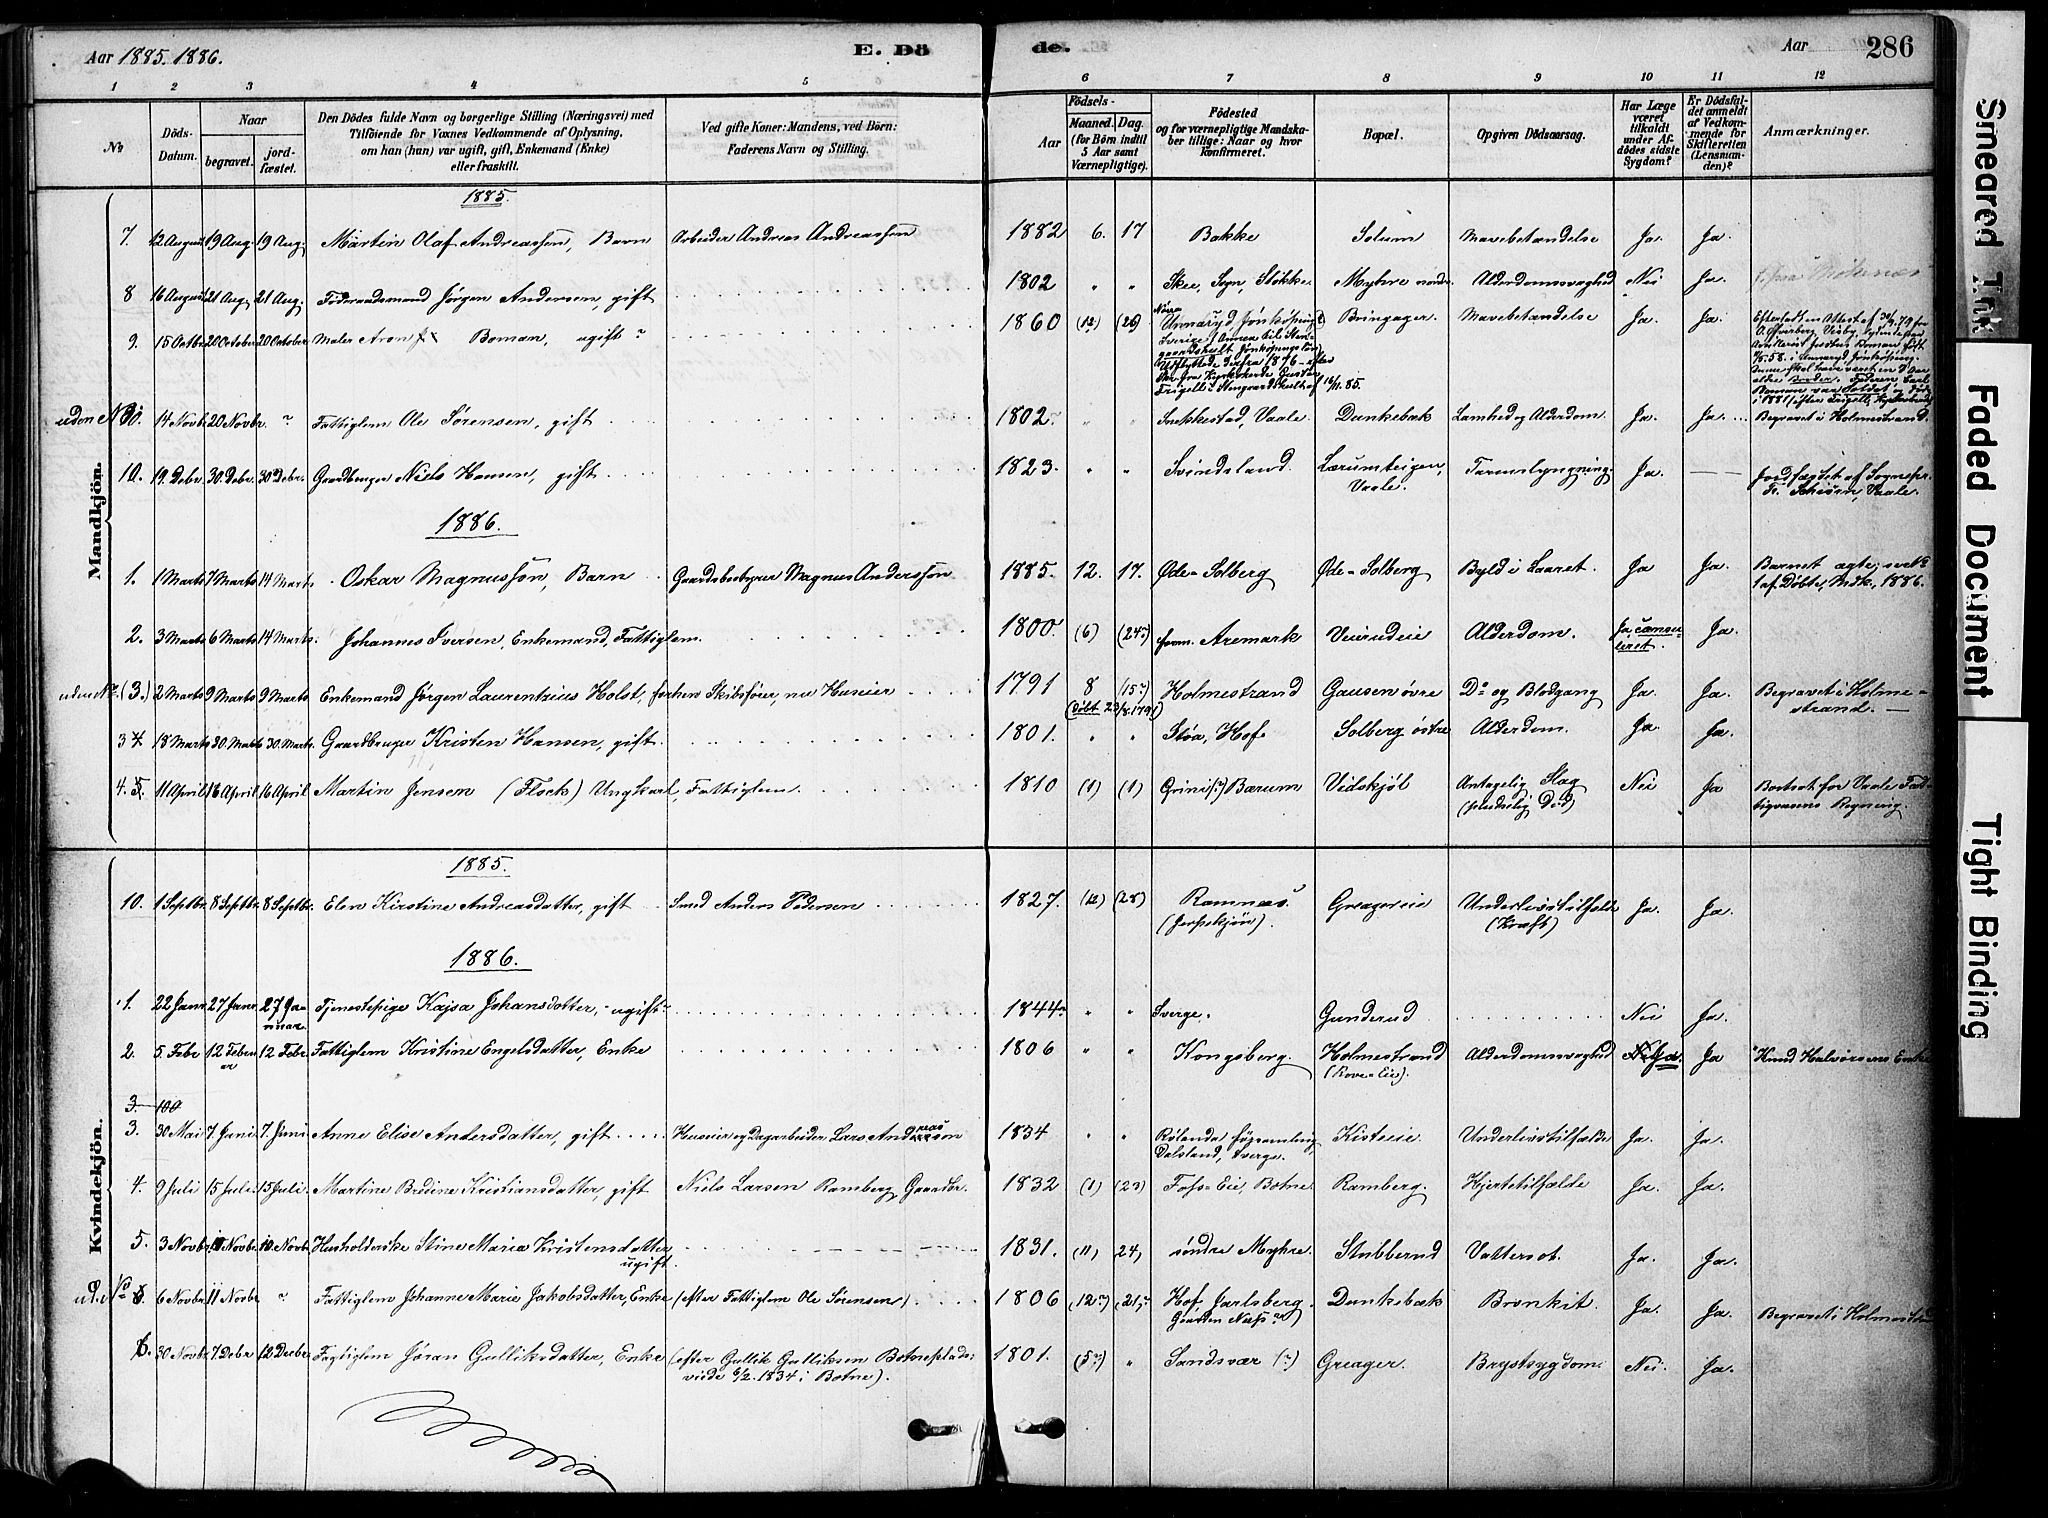 Aar 1885. 1886.
E. Dö
de.
Aar
286
1 2 3 4 5 6 7 8 9 10 11 12
No
Döds-
Datum.
Naar
begravet.
jord-
fæstet.
Den Dödes fulde Navn og borgerlige Stilling (Næringsvei) med
Tilföiende for Voxnes Vedkommende af Oplysning,
om han (hun) var ugift, gift, Enkemand (Enke)
eller fraskilt.
Ved gifte Koner: Mandens, ved Börn:
Faderens Navn og Stilling.
Födsels-
Aar
Maaned. Dag.
(for Börn indtil
5 Aar samt
Værnepligtige).
Födested
og for værnepligtige Mandska-
ber tillige: Naar og hvor
Konfirmeret.
Bopæl.
Opgiven Dödsaarsag.
Har Læge
været
tilkaldt
under Af-
dödes sidste
Sygdom?
Er Dödsfal-
det anmeldt
af Vedkom-
mende for
Skifteretten
(Lensman-
den)?
Anmærkninger.
Mandkjön.
1885.
7. 12 August 19 Aug. 19 Aug. Martin Olaf Andreassøn, Barn Arbeider Andreas Andreassøn 1882 6. 17 Bakke Solum Mavebetændelse Ja. Ja.
8 16 August 21 Aug. 21 Aug. Føderaadsmand Jørgen Andersen, gift 1802 " " Skee, Sogn, Stokke Myhre nordre. Alderdomssvaghed Nei Ja.
9. 15 Octbr 20 October 20 October Maler Aron Boman, ugift? 1860 (12) (26) Norra
Unnaryd, Jönköping Bringager. Mavebetændelse Ja. Ja.
uden No 10. 14 Novbr 20 Novbr. " Fattiglem Ole Sørensen, gift 1802. " " Snekkestad, Vaale. Dunkebæk Lamhed og Alderdom. Ja. Ja. Begravet i Holmestrand.
10. 19 Debr. 30 Debr. 30 Debr. Gaardbruger Niels Hansen, gift 1823. " " Svindsland. Lærumteigen,
Vaale. Tarmslyngning. Ja. — Jordfæstet af Sognepr.
Fr. Schiørn, Vaale.
1886.
1. 1 Marts 7 Marts 14 Marts Oskar Magnussøn, Barn Gaardsbestyrer Magnus Anderssøn 1885. 12. 17. Øde-Solberg Øde-Solberg Byld i Laaret. Ja Ja. Barnet ægte; se No
1 af Døbte, Mdk., 1886.
2. 3 Marts 6 Marts 14 Marts. Johannes Iversen, Enkemand, Fattiglem. 1800. (6) (24?) Aremark Veierudeie Alderdom. Ja, Ja.
uden No. (3.) 2 Marts 9 Marts 9 Marts Enkemand Jørgen Laurentzius Holst, forhen Skibsfører, nu Huseier 1791 8 (15?) Holmestrand Gausen øvre Do og Blodgang Ja. Ja. Begravet i Holme-
strand. —
(Døbt 23/8.1791)
3 4. 18 Marts 30. Marts 30. Marts. Gaardbruger Kristen Hansen, gift. 1801. " " Støa, Hof. Solberg østre Alderdom. Ja Ja.
4. 5. 11 April 16 April 16 April Martin Jensen (Flock) Ungkarl, Fattiglem. 1810 (1) (1) Grini (?) Bærum Vidskjøl Antagelig Slag
(pludselig Død) Nei Ja Bortsat for Vaale Fat-
tigvæsens Regning.
Kvindekjön.
1885.
10. 1 Septbr. 8 Septbr. 8 Septbr. Elen Kirstine Andreasdatter, gift Smed Anders Pedersen 1827. (12) (28) Ramnæs.
(Jerpekjøn). Greagereie Underlivstilfælde
(Kræft) Ja. Ja.
1886.
1. 22 Janr. 27 Janr. 27 Ja-
nuar. Tjenestepige Kajsa Johansdotter, ugift 1844 " " Sverge. Gunderud Nei Ja.
2. 5. Febr
ar 12 Februar 12 Febr. Fattiglem Kristine Engelsdatter, Enke 1806 " " Kongsberg. Holmestrand
(Rove-Eie). Alderdomssvaghed Ja. Ja Knud Halvorsens Enke
3. 100
3. 30 Mai 7. Juni 7. Juni. Anne Elise Andersdatter, gift Huseier og Dagarbeider Lars Andreassøn 1834 " " Rølanda församling
Dalsland, Sverge. Kisteeie. Underlivstilfælde Ja. Ja.
4. 9 Juli 15 Juli. 15 Juli. Martine Bredine Kristiansdatter, gift Niels Larsen Ramberg, Gaardbr. 1832 (1) (23) Foss-Eie, Botne. Ramberg. Hjertetilfælde Ja. Ja.
5. 3 Novbr. 10 Novbr. 10. Novbr. Husholderske Stine Maria Kristensdatter,
ugift. 1831. (11) 24, søndre Myhre. Stubberud Vattersot. Ja. Ja.
ud. No 6. 6 Novbr. 11 Novbr " Fattiglem Johanne Marie Jakobsdatter, Enke (efter Fattiglem Ole Sørensen). 1806 (12?) (21?) Hof, Jarlsberg.
Dunkebæk Bronkit. Ja. Ja. Begravet i Holmestrand
6. 30 Novbr. 7 Debr 12 Decbr. Fattiglem Jøran Gulliksdatter, Enke (efter Gullik Gulliksen Botneplads;
viede 6/2. 1834 i Botne). 1801. (5?) " Sandsvær (?) Greager. Brystsygdom. Nei. Ja.
Smeared Ink
Faded Document
Tight Binding